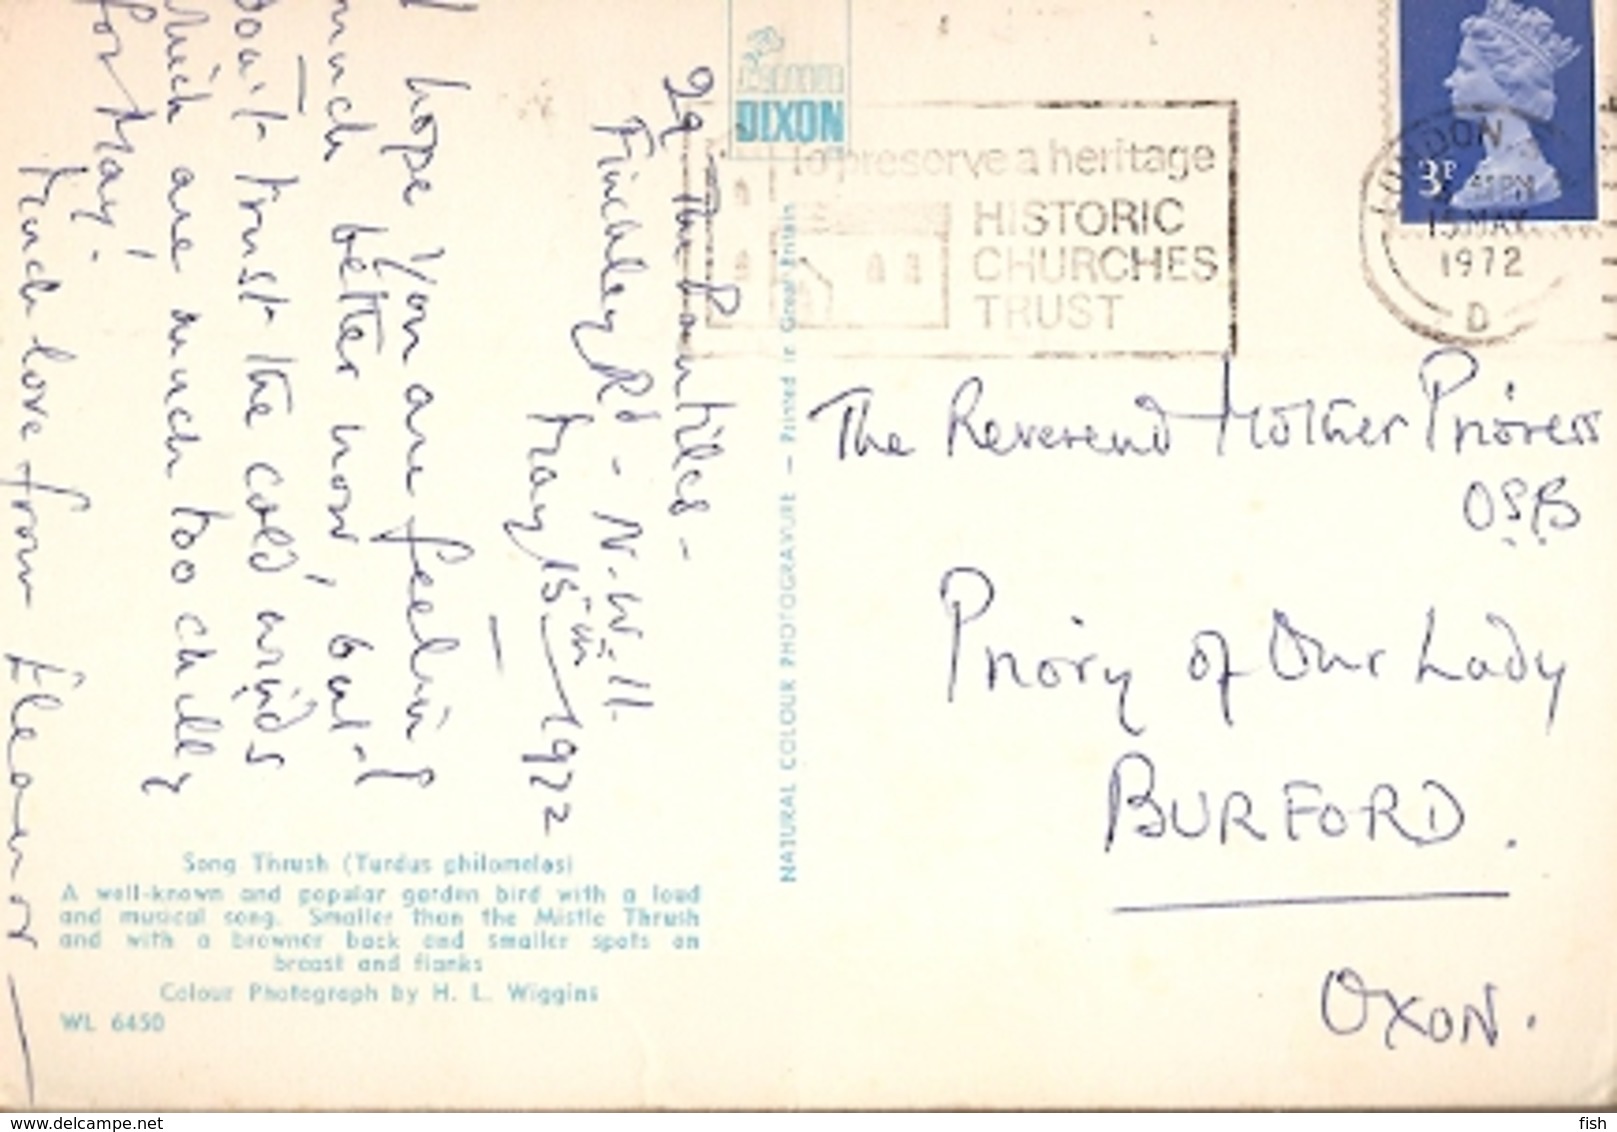 29 The Pantiles -
Finchley Rd - N.W.11.
May 15th 1972
I hope you are feeling
much better now, but I
don't trust the cold winds
which are much too chilly
for May.
Much love from Eleanor
Song Thrush (Turdus philomelos)
A well-known and popular garden bird with a loud
and musical song. Smaller than the Mistle Thrush
and with a browner back and smaller spots on
breast and flanks
Colour Photograph by H. L. Wiggins
WL 6450
DIXON
NATURAL COLOUR PHOTOGRAVURE — Printed in Great Britain
To preserve a heritage
HISTORIC
CHURCHES
TRUST
3P
LONDON
15 MAY
1972
D
The Reverend Mother Prioress
O.S.B
Priory of Our Lady
BURFORD.
OXON.
www.delcampe.net
fish